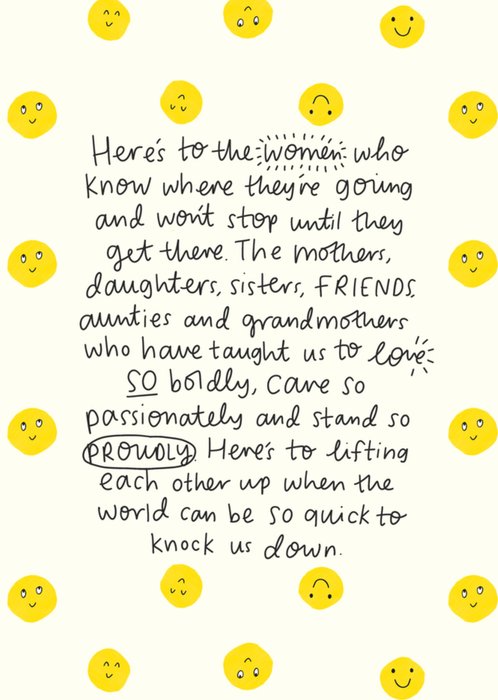 Here's to the women who
know where they're going
and won't stop until they
get there. The mothers,
daughters, sisters, FRIENDS,
aunties and grandmothers
who have taught us to love
SO boldly, care so
passionately and stand so
PROUDLY. Here's to lifting
each other up when the
world can be so quick to
knock us down.